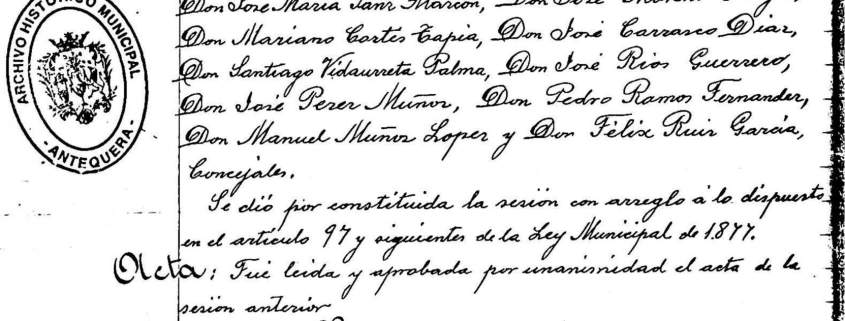 ARCHIVO HISTORICO MUNICIPAL
- ANTEQUERA -
Don José María Sanz Marcon, Don José
Don Mariano Cortés Tapia, Don José Carrasco Díaz,
Don Santiago Vidaurreta Palma, Don José Rios Guerrero,
Don José Perez Muñoz, Don Pedro Ramos Fernandez,
Don Manuel Muñoz Lopez y Don Félix Ruiz García,
Concejales.
Se dió por constituida la sesión con arreglo á lo dispuesto
en el artículo 97 y siguientes de la Ley Municipal de 1.877.
Acta: Fué leida y aprobada por unanimidad el acta de la
sesión anterior